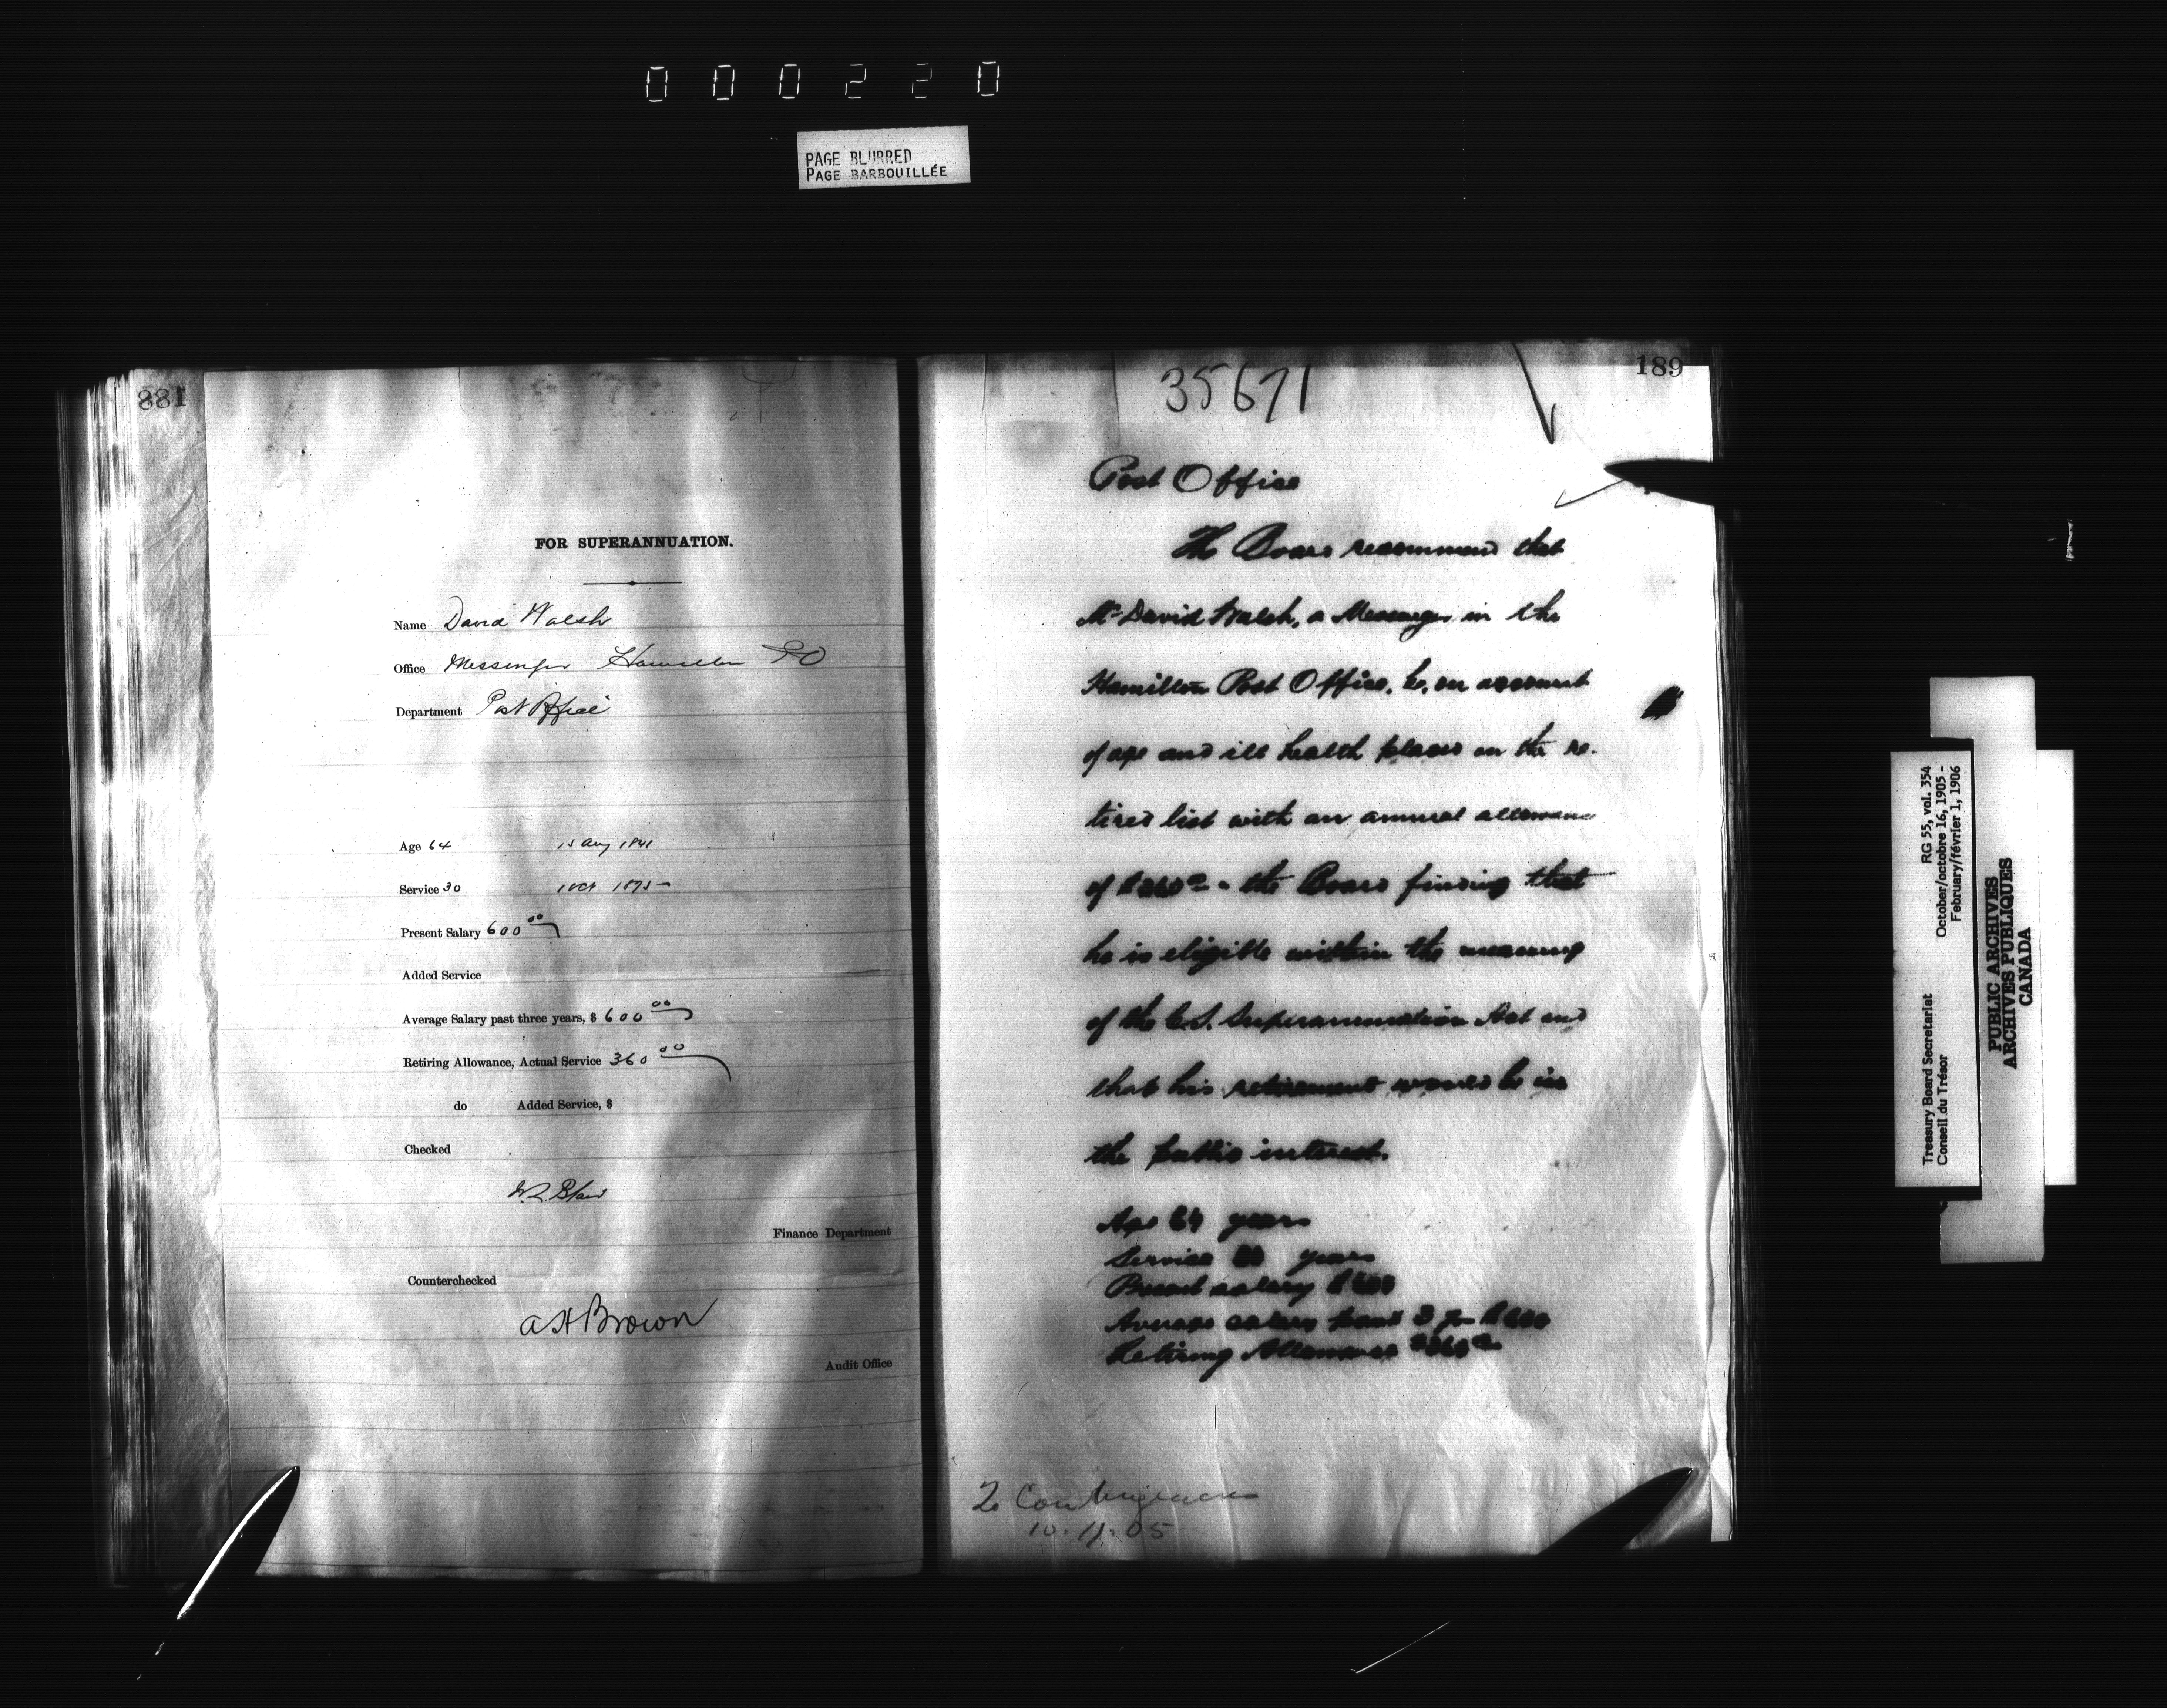 000220
PAGE BLURRED
PAGE BARBOUILLÉE
881
FOR SUPERANNUATION.
Name David Walsh
Office Messenger Hamilton PO
Department Post Office
Age 64 15 Aug 1841
Service 30 1 Oct 1875
Present Salary 600 00
Added Service
Average Salary past three years, $ 600 00
Retiring Allowance, Actual Service 360 00
do Added Service, $
Checked
Finance Department
Counterchecked
A H Brown
Audit Office
189
35671
Post Office
The Board recommend that
Mr David Walsh, a Messenger in the
Hamilton Post Office, be, on account
of age and ill health placed on the re-
tired list with an annual allowance
of $360 00 - the Board finding that
he is eligible within the meaning
of the C.S. Superannuation Act and
that his retirement would be in
the public interest.
Age 64 years
Service 30 years
Present salary $600
Average salary past 3 yrs $600
Retiring Allowance $360 00
2 Contingencies
10.11.05
Treasury Board Secretariat RG 55, vol. 354
Conseil du Trésor October/octobre 16, 1905 -
February/février 1, 1906
PUBLIC ARCHIVES
ARCHIVES PUBLIQUES
CANADA